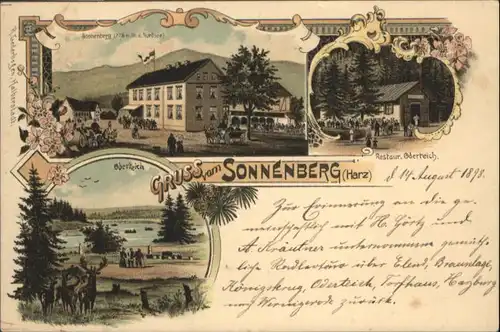 Sonnenberg
Restaur. Oderteich.
Oderteich
GRUSS vom SONNENBERG (HARZ)
d 14 August 1898.
Zur Erinnerung an die ge-
meinschaftlich mit H. Görtz und
A. Kräutner unternommene gemüth-
liche Radlertour über Elend, Braunlage,
Königskrug, Oderteich, Torfhaus, Harzburg
und Wernigerode zurück.